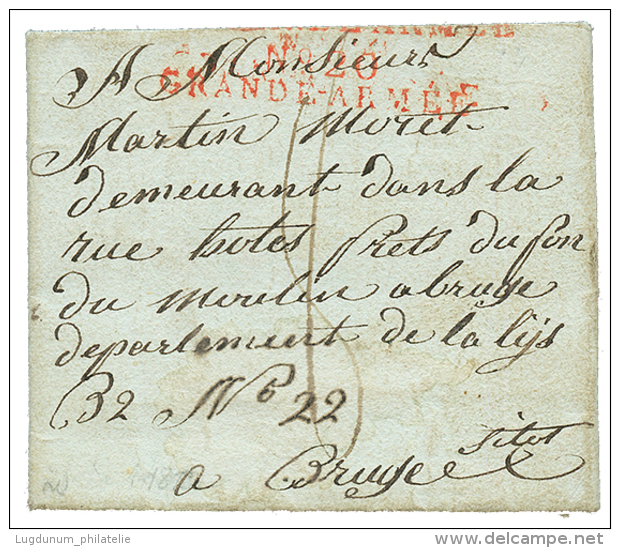 No 26
GRANDE-ARMÉE
A Monsieur
Martin Moret
demeurant dans la
rue hotes prets du fon
du moulin a bruge
departement de la lijs
B2 No 22
a Bruge
Lugdunum_philatelie
delcampe.net